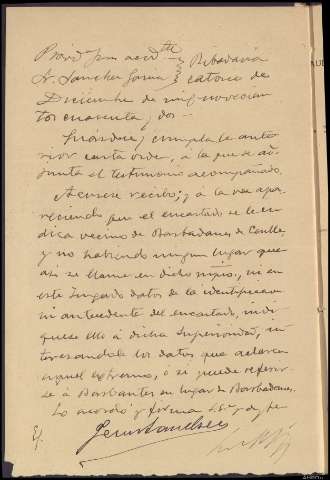 Provid.ª juez accid.tal
Sr. Sanchez Garcia
Ribadavia
catorce de
Diciembre de mil novecien
tos cuarenta y dos.-
Guárdese y cumpla la ante
rior carta orden, á la que se ad
junta el testimonio acompañado.
Acúsese recibo; y á la vez apa
reciendo que el encartado se le in
dica vecino de Barbadanes de Caulle,
y no habiendo ningun lugar que
asi se llame en dicho mpio, ni en
este Juzgado datos de la identificacion
ni antecedente del encartado, indi
quese ello á dicha Superioridad, in
teresandole los datos que aclaren
aquel extremo, ó si puede referir
se á Barbantes en lugar de Barbadanes.
Lo acordó y firma S.Sª, doy fe
E/.
Jesus Sanchez